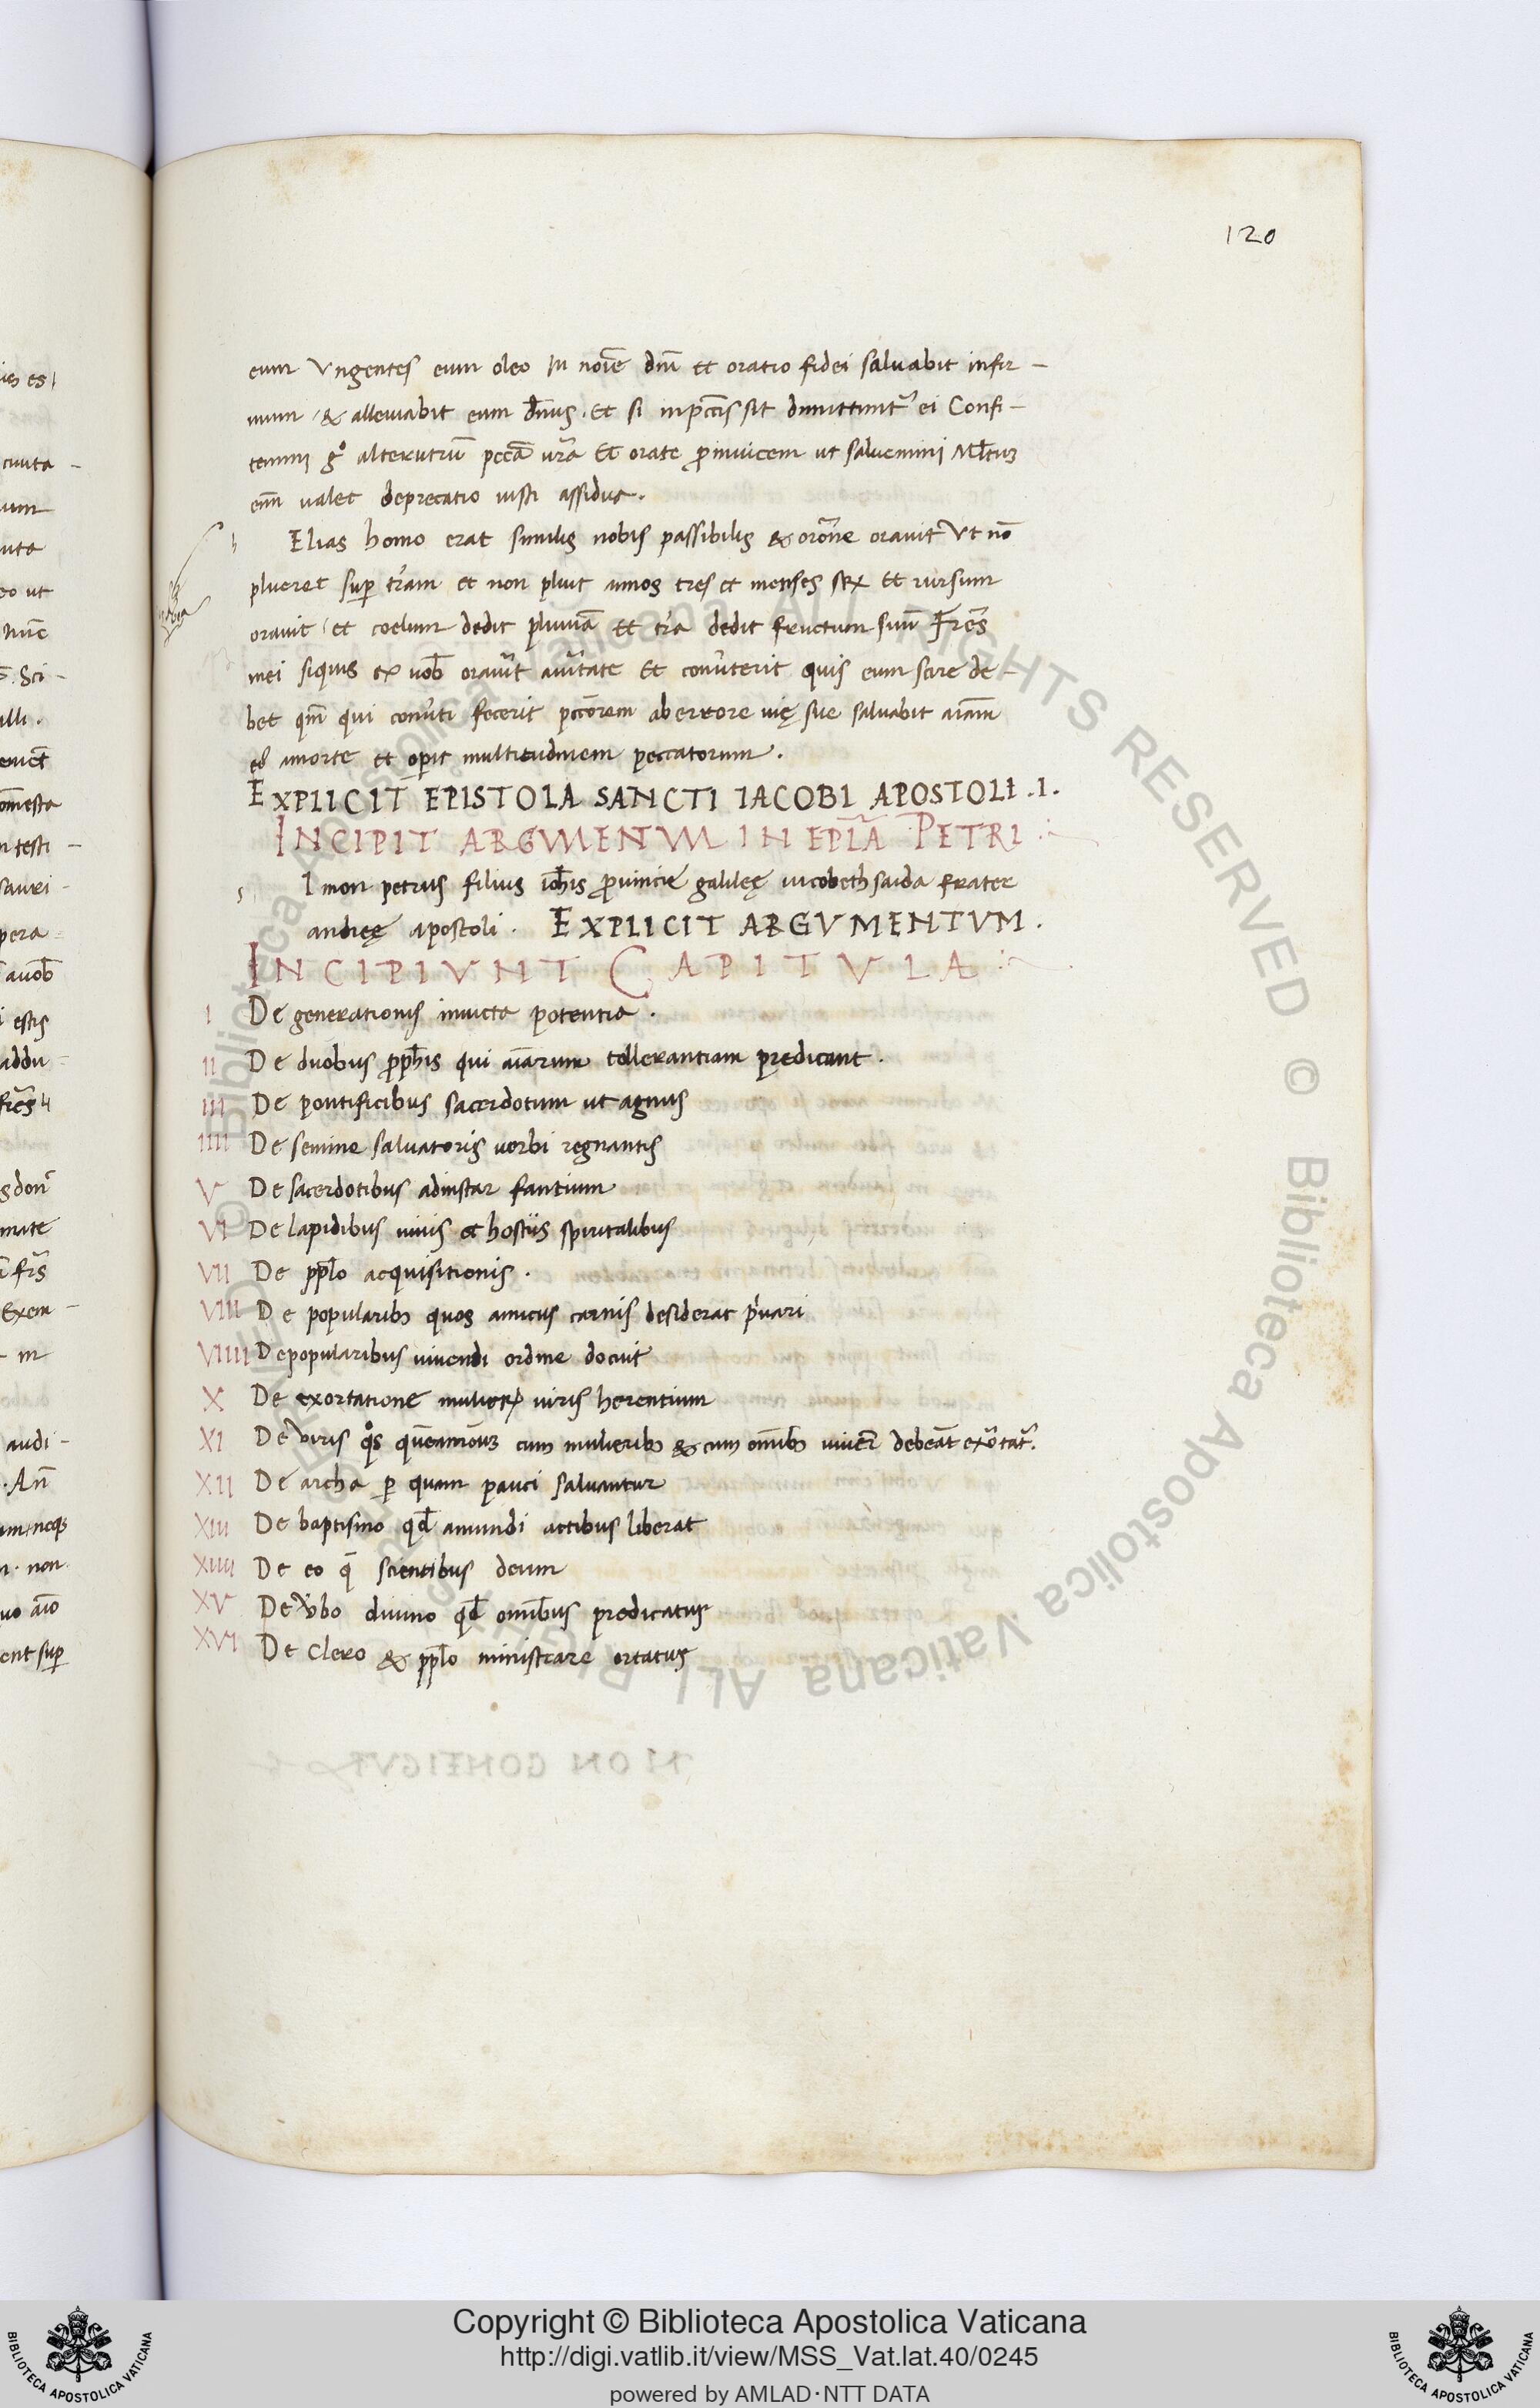 120
eum Vngentes eum oleo In noīe dn̄i et oratio fidei saluabit infir-
mum & alleuiabit eum dn̄us. Et si inpcc̄is sit dimittunt᷑ ei Confi-
temini gͦ alterutrū pccā vrā Et orate p̄inuicem ut saluemini Ml̄tuꝫ
eni̅ ualet deprecatio iusti assidua.
Elias homo erat similis nobis passibilis & orōne orauit Vt nō
plueret suꝑ tr̄am et non pluit annos tres et menses sex Et rursum
orauit et coelum dedit pluuiā Et tr̄a dedit fructum suū Frēs
mei siquis ex uob̄ orau̅it au̅itate Et conu̅terit quis eum scire de-
bet qm̄ qui conu̅ti fecerit pccōrem aberrore uię sue saluabit aiām
eꝰ amorte et oꝑit multitudinem peccatorum.
EXPLICIT EPISTOLA SANCTI IACOBI APOSTOLI .I.
INCIPIT ARGVMENTVM IN EPLĀ PETRI
s Imon petrus filius ioh̄is ꝓuincię galilęę uicobethsaida frater
andręę apostoli. EXPLICIT ARGVMENTVM.
INCIPIVNT CAPITVLA
I De generationis inuicta potentia.
II De duobus ꝓph̄is qui aīarum tollerantiam predicant.
III De pontificibus sacerdotum ut agnus
IIII De semine saluatoris uerbi regnantis
V De sacerdotibus adinstar fantium
VI De lapidibus uiuis et hostiis spiritalibus
VII De ppl̄o acquisitionis.
VIII De popularibꝫ quos amicus carnis desiderat pͥuari
VIIII Depopularibus uiuendi ordine docuit
X De exortatione mulieꝝ uiris herentium
XI De viris qͦs quēamōuꝫ cum mulieribꝫ & cum omībꝫ uiuer̄ debeāt exortat᷑.
XII De archa ꝑ quam pauci saluantur
XIII De baptismo qd̄ amundi actibus liberat
XIIII De eo q̄ scientibus deum
XV De v̄bo diuino qd̄ omībus predicatur
XVI De clero & ppl̄o ministrare ortatus
Copyright © Biblioteca Apostolica Vaticana
http://digi.vatlib.it/view/MSS_Vat.lat.40/0245
powered by AMLAD·NTT DATA
BIBLIOTECA APOSTOLICA VATICANA
BIBLIOTECA APOSTOLICA VATICANA